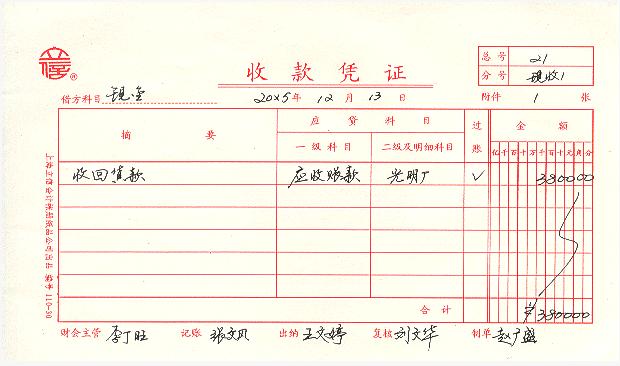 收款凭证
总号 21
分号 现收1
借方科目 现金 20×5年 12月 13日 附件 1 张
摘要 应贷科目 过账 金额
一级科目 二级及明细科目 亿千百十万千百十元角分
收回货款 应收账款 光明厂 √ 380000
合计 ¥380000
财会主管 李丁旺 记账 张文风 出纳 王文婷 复核 刘文华 制单 赵广盛